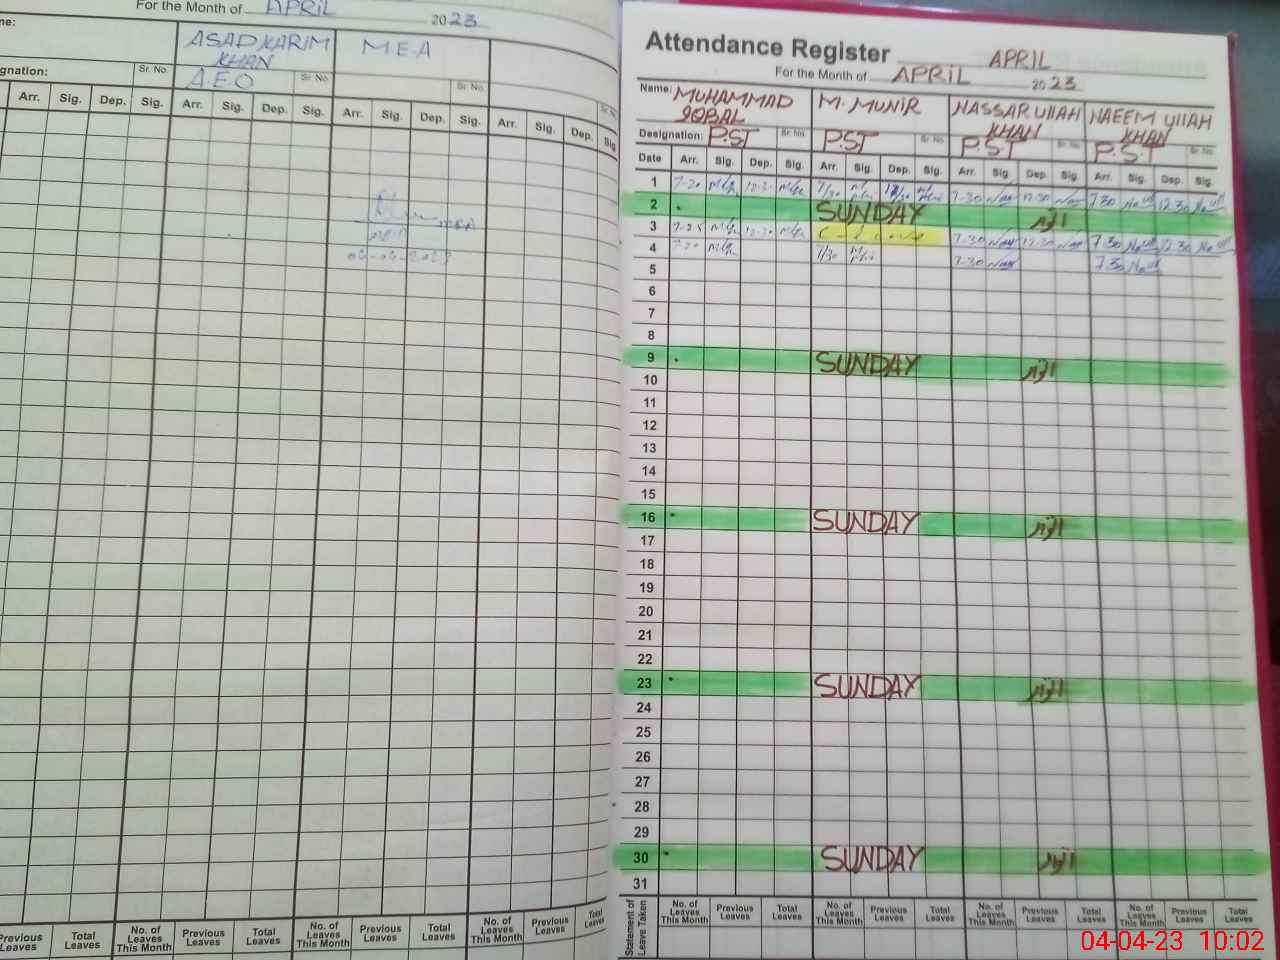 For the Month of APRIL 2023
me:
ASAD KARIM
KHAN
M.E.A
gnation:
Sr. No.
A.E.O
Sr. No.
Sr. No.
Sr. No.
Arr. Sig. Dep. Sig. Arr. Sig. Dep. Sig. Arr. Sig. Dep. Sig. Arr. Sig. Dep. Sig
MEA
04-04-2023
Previous Leaves Total Leaves No. of Leaves This Month Previous Leaves Total Leaves No. of Leaves This Month Previous Leaves Total Leaves No. of Leaves This Month Previous Leaves Total Leaves
Attendance Register APRIL
For the Month of APRIL 2023
Name: MUHAMMAD IQBAL M. MUNIR NASSAR UllAH KHAN NAEEM UllAH KHAN
Designation: P.ST Sr. No. P.ST Sr. No. P.ST Sr. No. P.S.T Sr. No.
Date Arr. Sig. Dep. Sig. Arr. Sig. Dep. Sig. Arr. Sig. Dep. Sig. Arr. Sig. Dep. Sig.
1 7-20 12-30 7/30 12/30 7-30 12-30 7 30 12 30
2 SUNDAY اتوار
3 7-25 12-30 7-30 12-30 7 30 12 30
4 7-20 7/30 7-30 7 30
5
6
7
8
9 SUNDAY اتوار
10
11
12
13
14
15
16 SUNDAY اتوار
17
18
19
20
21
22
23 SUNDAY اتوار
24
25
26
27
28
29
30 SUNDAY اتوار
31
Statement of Leave Taken No. of Leaves This Month Previous Leaves Total Leaves No. of Leaves This Month Previous Leaves Total Leaves No. of Leaves This Month Previous Leaves Total Leaves No. of Leaves This Month Previous Leaves Total Leaves
04-04-23 10:02